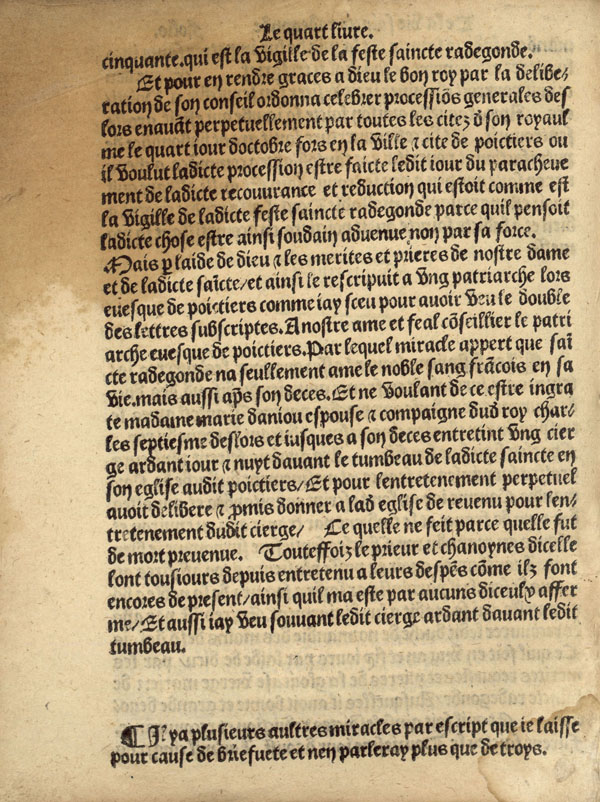 Le quart liure.
cinquante.qui est la vigille de la feste saincte radegonde.
Et pour en rendre graces a dieu le bon roy par la delibe/
ration de son conseil ordonna celebrer processiōs generales des
lors enauāt perpetuellement par toutes les citez d̄ son royaul
me le quart iour doctobre fors en la ville ⁊ cite de poictiers ou
il voulut ladicte procession estre faicte ledit iour du paracheue
ment de ladicte recouurance et reduction qui estoit comme est
la vigille de ladicte feste saincte radegonde parce quil pensoit
ladicte chose estre ainsi soudain aduenue non par sa force.
Mais p̱ laide de dieu ⁊ les merites et prieres de nostre dame
et de ladicte saīcte/et ainsi le rescripuit a vng patriarche lors
euesque de poictiers comme iay sceu pour auoir veu le double
des lettres subscriptes. A nostre ame et feal cōseillier le patri
arche euesque de poictiers. Par lequel miracle appert que saī
cte radegonde na seullement ame le noble sang frācois en sa
vie.mais aussi ap̄s son deces. Et ne voulant de ce estre ingra
te madame marie daniou espouse ⁊ compaigne dud̄ roy char/
les septiesme deslors et iusques a son deces entretint vng cier
ge ardant iour ⁊ nuyt dauant le tumbeau de ladicte saincte en
son eglise audit poictiers/ Et pour lentretenement perpetuel
auoit delibere ⁊ ꝓmis donner a lad̄ eglise de reuenu pour len/
tretenement dudit cierge/ Ce quelle ne feit parce quelle fut
de mort preuenue. Touteffoiz le prieur et chanoynes dicelle
lont tousiours depuis entretenu a leurs despēs cōme ilz font
encores de present/ainsi quil ma este par aucuns diceulx affer
me/Et aussi iay veu souuant ledit cierge ardant dauant ledit
tumbeau.
¶ Il ya plusieurs aultres miracles par escript que ie laisse
pour cause de briefuete et nen parleray plus que de troys.